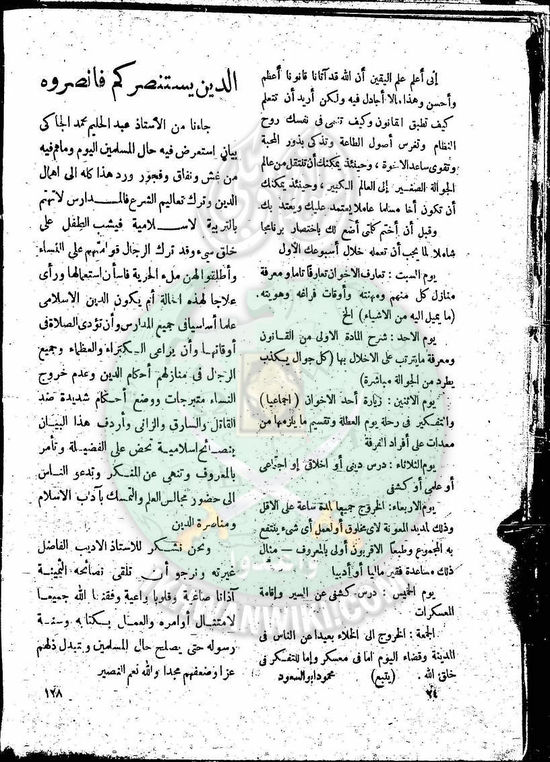 إنى أعلم علم اليقين أن الله قد آتانا قانونا أعظم
وأحسن وهذا مالا أجادل فيه ولكن أريد أن تتعلم
كيف تطبق القانون وكيف تنمى فى نفسك روح
النظام وتغرس أصول الطاعة وتذكى بذور المحبة
وتقوى ساعد الاخوة ، وحينئذ يمكنك أن تنتقل من عالم
الجوالة الصغير إلى العالم الكبير ، وحينئذ يمكنك
أن تكون أخا مسلما عاملا يعتمد عليك ويعتد بك
وقبل أن أختم كلتى أضع لك باختصار برنامجا
شاملا لما يجب أن تعمله خلال أسبوعك الأول
يوم السبت : تعارف الاخوان تعارفا تاما ومعرفة
منازل كل منهم ومهنته وأوقات فراغه وهويته .
(ما يميل اليه من الاشياء) الخ
يوم الاحد : شرح المادة الاولى من القانون
ومعرفة ما يترتب على الاخلال بها (كل جوال يكذب
يطرد من الجوالة مباشرة)
يوم الاثنين : زيارة أحد الاخوان (اجماعيا)
والتفكير فى رحلة يوم العطلة وتقسيم ما يلزمها من
معدات على أفراد الفرقة
يوم الثلاثاء : درس دينى أو اخلاقى أو اجتماعى
أو علمى أو كشفى
يوم الاربعاء : الخروج جميعا لمدة ساعة على الاقل
وذلك لمديد المعونة لاى مخلوق أو لعمل أى شىء ينتفع
به المجموع وطبعا الاقربون أولى بالمعروف — مثال
ذلك مساعدة فقير ماليا أو أدبيا
يوم الخميس : درس كشفى عن السير وإقامة
المعسكرات
الجمعة : الخروج الى الخلاء بعيدا عن الناس فى
المدينة وقضاء اليوم اما فى معسكر واما للتفكر فى
خلق الله . (يتبع) محمود ابو السعود
٢٤
الدين يستنصركم فانصروه
جاءنا من الأستاذ عبد الحليم محمد الجاكى
بيانى استعرض فيه حال المسلمين اليوم وما هم فيه
من غش ونفاق وفجور ورد هذا كله الى اهمال
الدين وترك تعاليم الشرع فالمدارس لا تهتم
بالتربية الاسلامية فيشب الطفل على
خلق سىء وقد ترك الرجال قوامتهم على النساء
وأطلقوا لهن ملء الحرية فأسأن استعمالها ورأى
علاجا لهذه الحالة أن يكون الدين الاسلامى
علما أساسيا فى جميع المدارس وأن تؤدى الصلاة فى
أوقاتها وأن يراعى الكبراء والعظماء وجميع
الرجال فى منازلهم أحكام الدين وعدم خروج
النساء متبرجات ووضع أحكام شديدة ضد
القاتل والسارق والزانى وأردف هذا البيان
بنصائح اسلامية تحض على الفضيلة وتأمر
بالمعروف وتنهى عن المنكر وتدعو الناس
الى حضور مجالس العلم والتمسك بآداب الاسلام
ومناصرة الدين
ونحن نشكر للاستاذ الاديب الفاضل
غيرته ونرجو أن تلقى نصائحه الثمينة
آذانا صاغية وقلوبا واعية وفقنا الله جميعا
لامتثال أوامره والعمل بكتابه وسنة
رسوله حتى يصلح حال المسلمين ويتبدل ذلهم
عزا وضعفهم مجدا والله نعم النصير
١٢٨